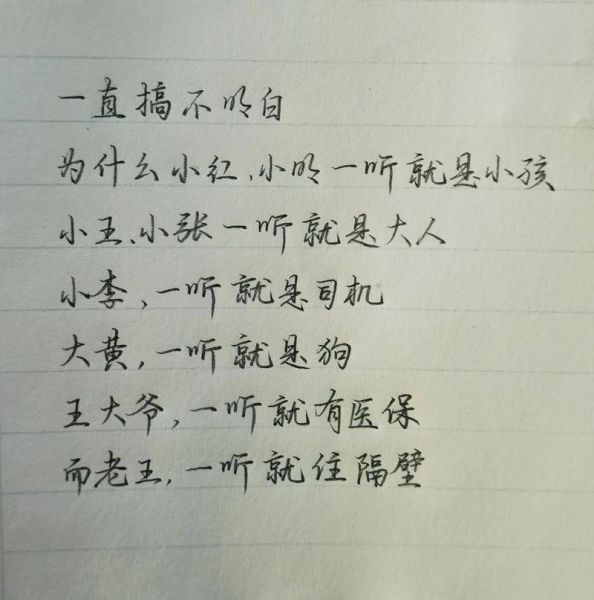 一直搞不明白
为什么小红、小明一听就是小孩
小王、小张一听就是大人
小李，一听就是司机
大黄，一听就是狗
王大爷，一听就有医保
而老王，一听就住隔壁